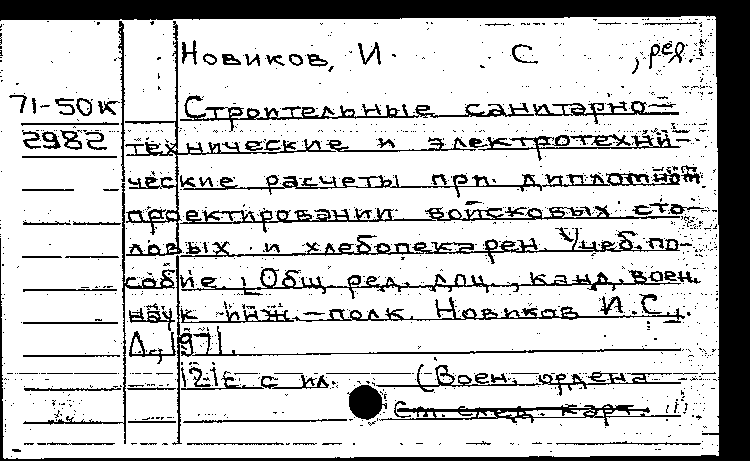 Новиков, И. С , ред.
71-50к Строительные санитарно-
2982 технические и электротехни-
ческие расчеты при дипломном
проектировании войсковых сто-
ловых и хлебопекарен. Учеб. по-
собие. [Общ. ред. доц., канд. воен.
наук инж.-полк. Новиков И.С.].
Л., 1971.
121 с. с ил. (Воен. ордена
См. след. карт.